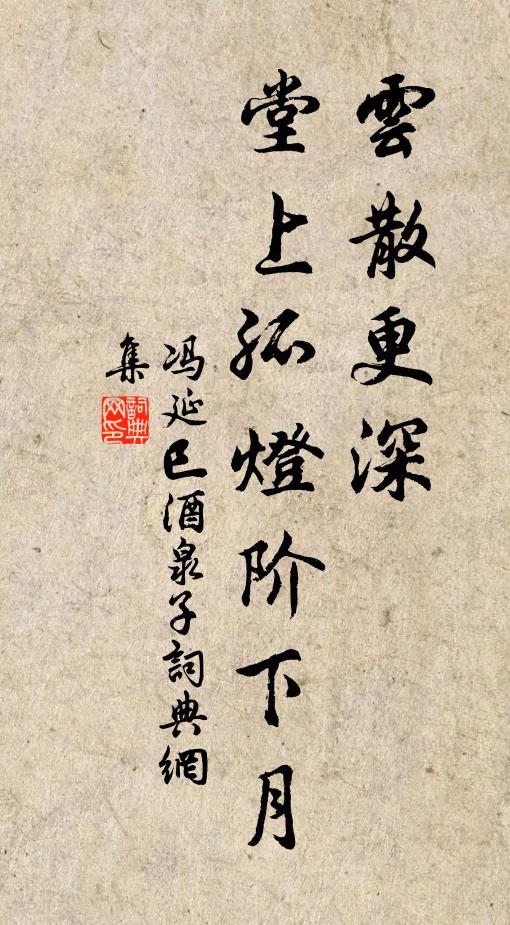 雲散更深
堂上孤燈阶下月
冯延巳酒泉子詞典網
集
詞典网印